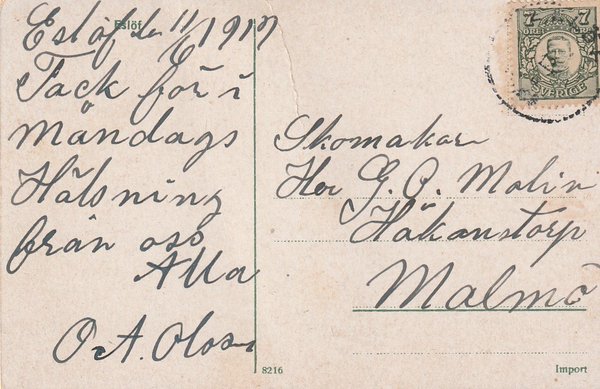 Eslöf
Eslöf de 11/6 1917
Tack för i
Måndags
Hälsning
från oss
Alla
O. A. Olsson
7 7
ÖRE
SVERIGE
Skomakare
Her G. O. Malin
Håkanstorp
Malmö
8216
Import